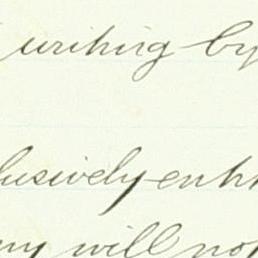 writing by
lusively enti
ny will not